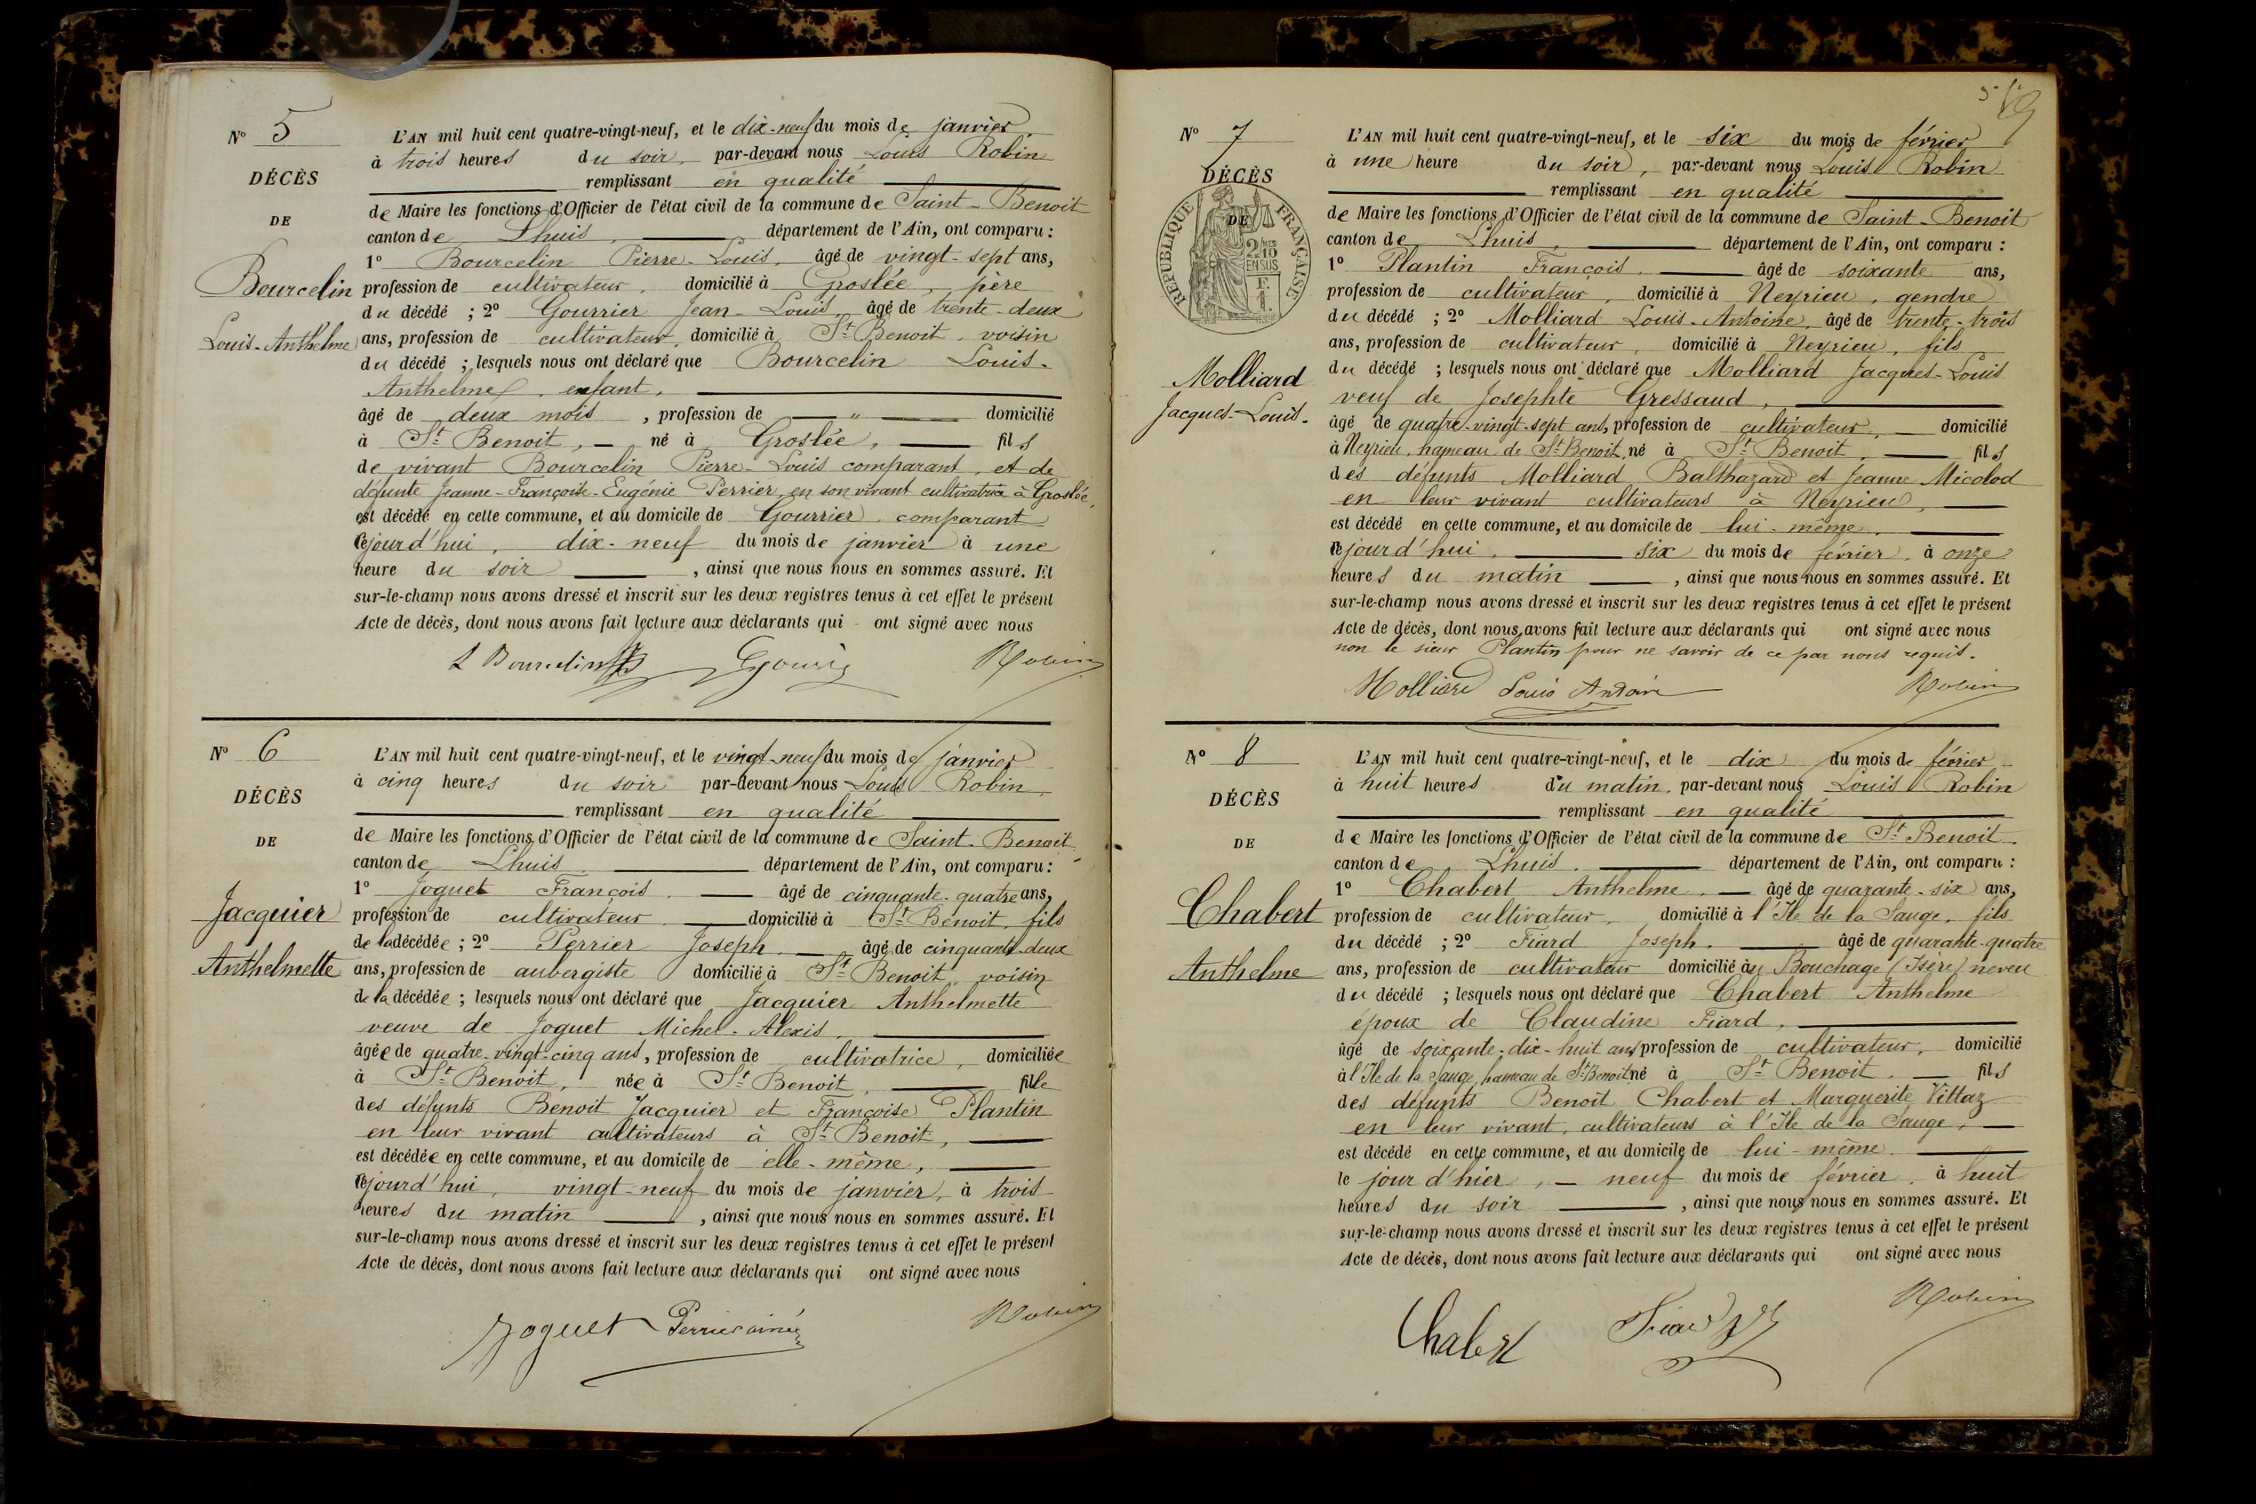 N° 5
DÉCÈS
DE
Bourcelin
Louis-Anthelme
L'AN mil huit cent quatre-vingt-neuf, et le dix-neuf du mois de janvier
à trois heures du soir, par-devant nous Louis Robin
remplissant en qualité
de Maire les fonctions d'Officier de l'état civil de la commune de Saint-Benoit
canton de Lhuis, département de l'Ain, ont comparu :
1° Bourcelin Pierre-Louis, âgé de vingt-sept ans,
profession de cultivateur, domicilié à Groslée, père
du décédé ; 2° Gourrier Jean-Louis, âgé de trente-deux
ans, profession de cultivateur, domicilié à St Benoit, voisin
du décédé ; lesquels nous ont déclaré que Bourcelin Louis-
Anthelme, enfant,
âgé de deux mois, profession de " domicilié
à St Benoit, né à Groslée, fils
de vivant Bourcelin Pierre-Louis comparant, et de
défunte Jeanne-Françoise-Eugénie Perrier, en son vivant cultivatrice à Groslée,
est décédé en cette commune, et au domicile de Gourrier, comparant
cejourd'hui, dix-neuf du mois de janvier à une
heure du soir, ainsi que nous nous en sommes assuré. Et
sur-le-champ nous avons dressé et inscrit sur les deux registres tenus à cet effet le présent
Acte de décès, dont nous avons fait lecture aux déclarants qui ont signé avec nous
Robin
N° 6
DÉCÈS
DE
Jacquier
Anthelmette
L'AN mil huit cent quatre-vingt-neuf, et le vingt-neuf du mois de janvier
à cinq heures du soir par-devant nous Louis Robin,
remplissant en qualité
de Maire les fonctions d'Officier de l'état civil de la commune de Saint-Benoit
canton de Lhuis département de l'Ain, ont comparu :
1° Joguet François. âgé de cinquante-quatre ans,
profession de cultivateur domicilié à St Benoit, fils
de la décédée ; 2° Perrier Joseph. âgé de cinquante-deux
ans, profession de aubergiste domicilié à St Benoit, voisin
de la décédée ; lesquels nous ont déclaré que Jacquier Anthelmette
veuve de Joguet Michel-Alexis,
âgée de quatre-vingt-cinq ans, profession de cultivatrice, domiciliée
à St Benoit, née à St Benoit, fille
des défunts Benoit Jacquier et Françoise Plantin
en leur vivant cultivateurs à St Benoit,
est décédée en cette commune, et au domicile de elle-même,
cejourd'hui, vingt-neuf du mois de janvier, à trois
heures du matin, ainsi que nous nous en sommes assuré. Et
sur-le-champ nous avons dressé et inscrit sur les deux registres tenus à cet effet le présent
Acte de décès, dont nous avons fait lecture aux déclarants qui ont signé avec nous
Joguet Perrier ainé Robin
N° 7
DÉCÈS
DE
RÉPUBLIQUE FRANÇAISE
EN SUS
Molliard
Jacques-Louis.
L'AN mil huit cent quatre-vingt-neuf, et le six du mois de février
à une heure du soir, par-devant nous Louis Robin
remplissant en qualité
de Maire les fonctions d'Officier de l'état civil de la commune de Saint-Benoit
canton de Lhuis, département de l'Ain, ont comparu :
1° Plantin François. âgé de soixante ans,
profession de cultivateur, domicilié à Neyrieu, gendre
du décédé ; 2° Molliard Louis-Antoine, âgé de trente-trois
ans, profession de cultivateur, domicilié à Neyrieu, fils
du décédé ; lesquels nous ont déclaré que Molliard Jacques-Louis
veuf de Josephte Gressaud,
âgé de quatre-vingt-sept ans, profession de cultivateur, domicilié
à Neyrieu, hameau de St Benoit, né à St Benoit, fils
des défunts Molliard Balthazard et Jeanne Micolod
en leur vivant cultivateurs à Neyrieu,
est décédé en cette commune, et au domicile de lui-même,
cejourd'hui, six du mois de février, à onze
heures du matin, ainsi que nous nous en sommes assuré. Et
sur-le-champ nous avons dressé et inscrit sur les deux registres tenus à cet effet le présent
Acte de décès, dont nous avons fait lecture aux déclarants qui ont signé avec nous
non le sieur Plantin pour ne savoir de ce par nous requis.
Molliard Louis Antoine Robin
N° 8
DÉCÈS
DE
Chabert
Anthelme
L'AN mil huit cent quatre-vingt-neuf, et le dix du mois de février
à huit heures du matin, par-devant nous Louis Robin
remplissant en qualité
de Maire les fonctions d'Officier de l'état civil de la commune de St Benoit
canton de Lhuis. département de l'Ain, ont comparu :
1° Chabert Anthelme. âgé de quarante-six ans,
profession de cultivateur, domicilié à l'Ile de la Sauge, fils
du décédé ; 2° Fiard Joseph. âgé de quarante-quatre
ans, profession de cultivateur domicilié au Bouchage (Isère) neveu
du décédé ; lesquels nous ont déclaré que Chabert Anthelme
époux de Claudine Fiard,
âgé de soixante-dix-huit ans profession de cultivateur, domicilié
à l'Ile de la Sauge, hameau de St Benoit né à St Benoit. fils
des défunts Benoit Chabert et Marguerite Vittaz
en leur vivant, cultivateurs à l'Ile de la Sauge,
est décédé en cette commune, et au domicile de lui-même.
le jour d'hier, neuf du mois de février, à huit
heures du soir, ainsi que nous nous en sommes assuré. Et
sur-le-champ nous avons dressé et inscrit sur les deux registres tenus à cet effet le présent
Acte de décès, dont nous avons fait lecture aux déclarants qui ont signé avec nous
Chabert Fiard Robin